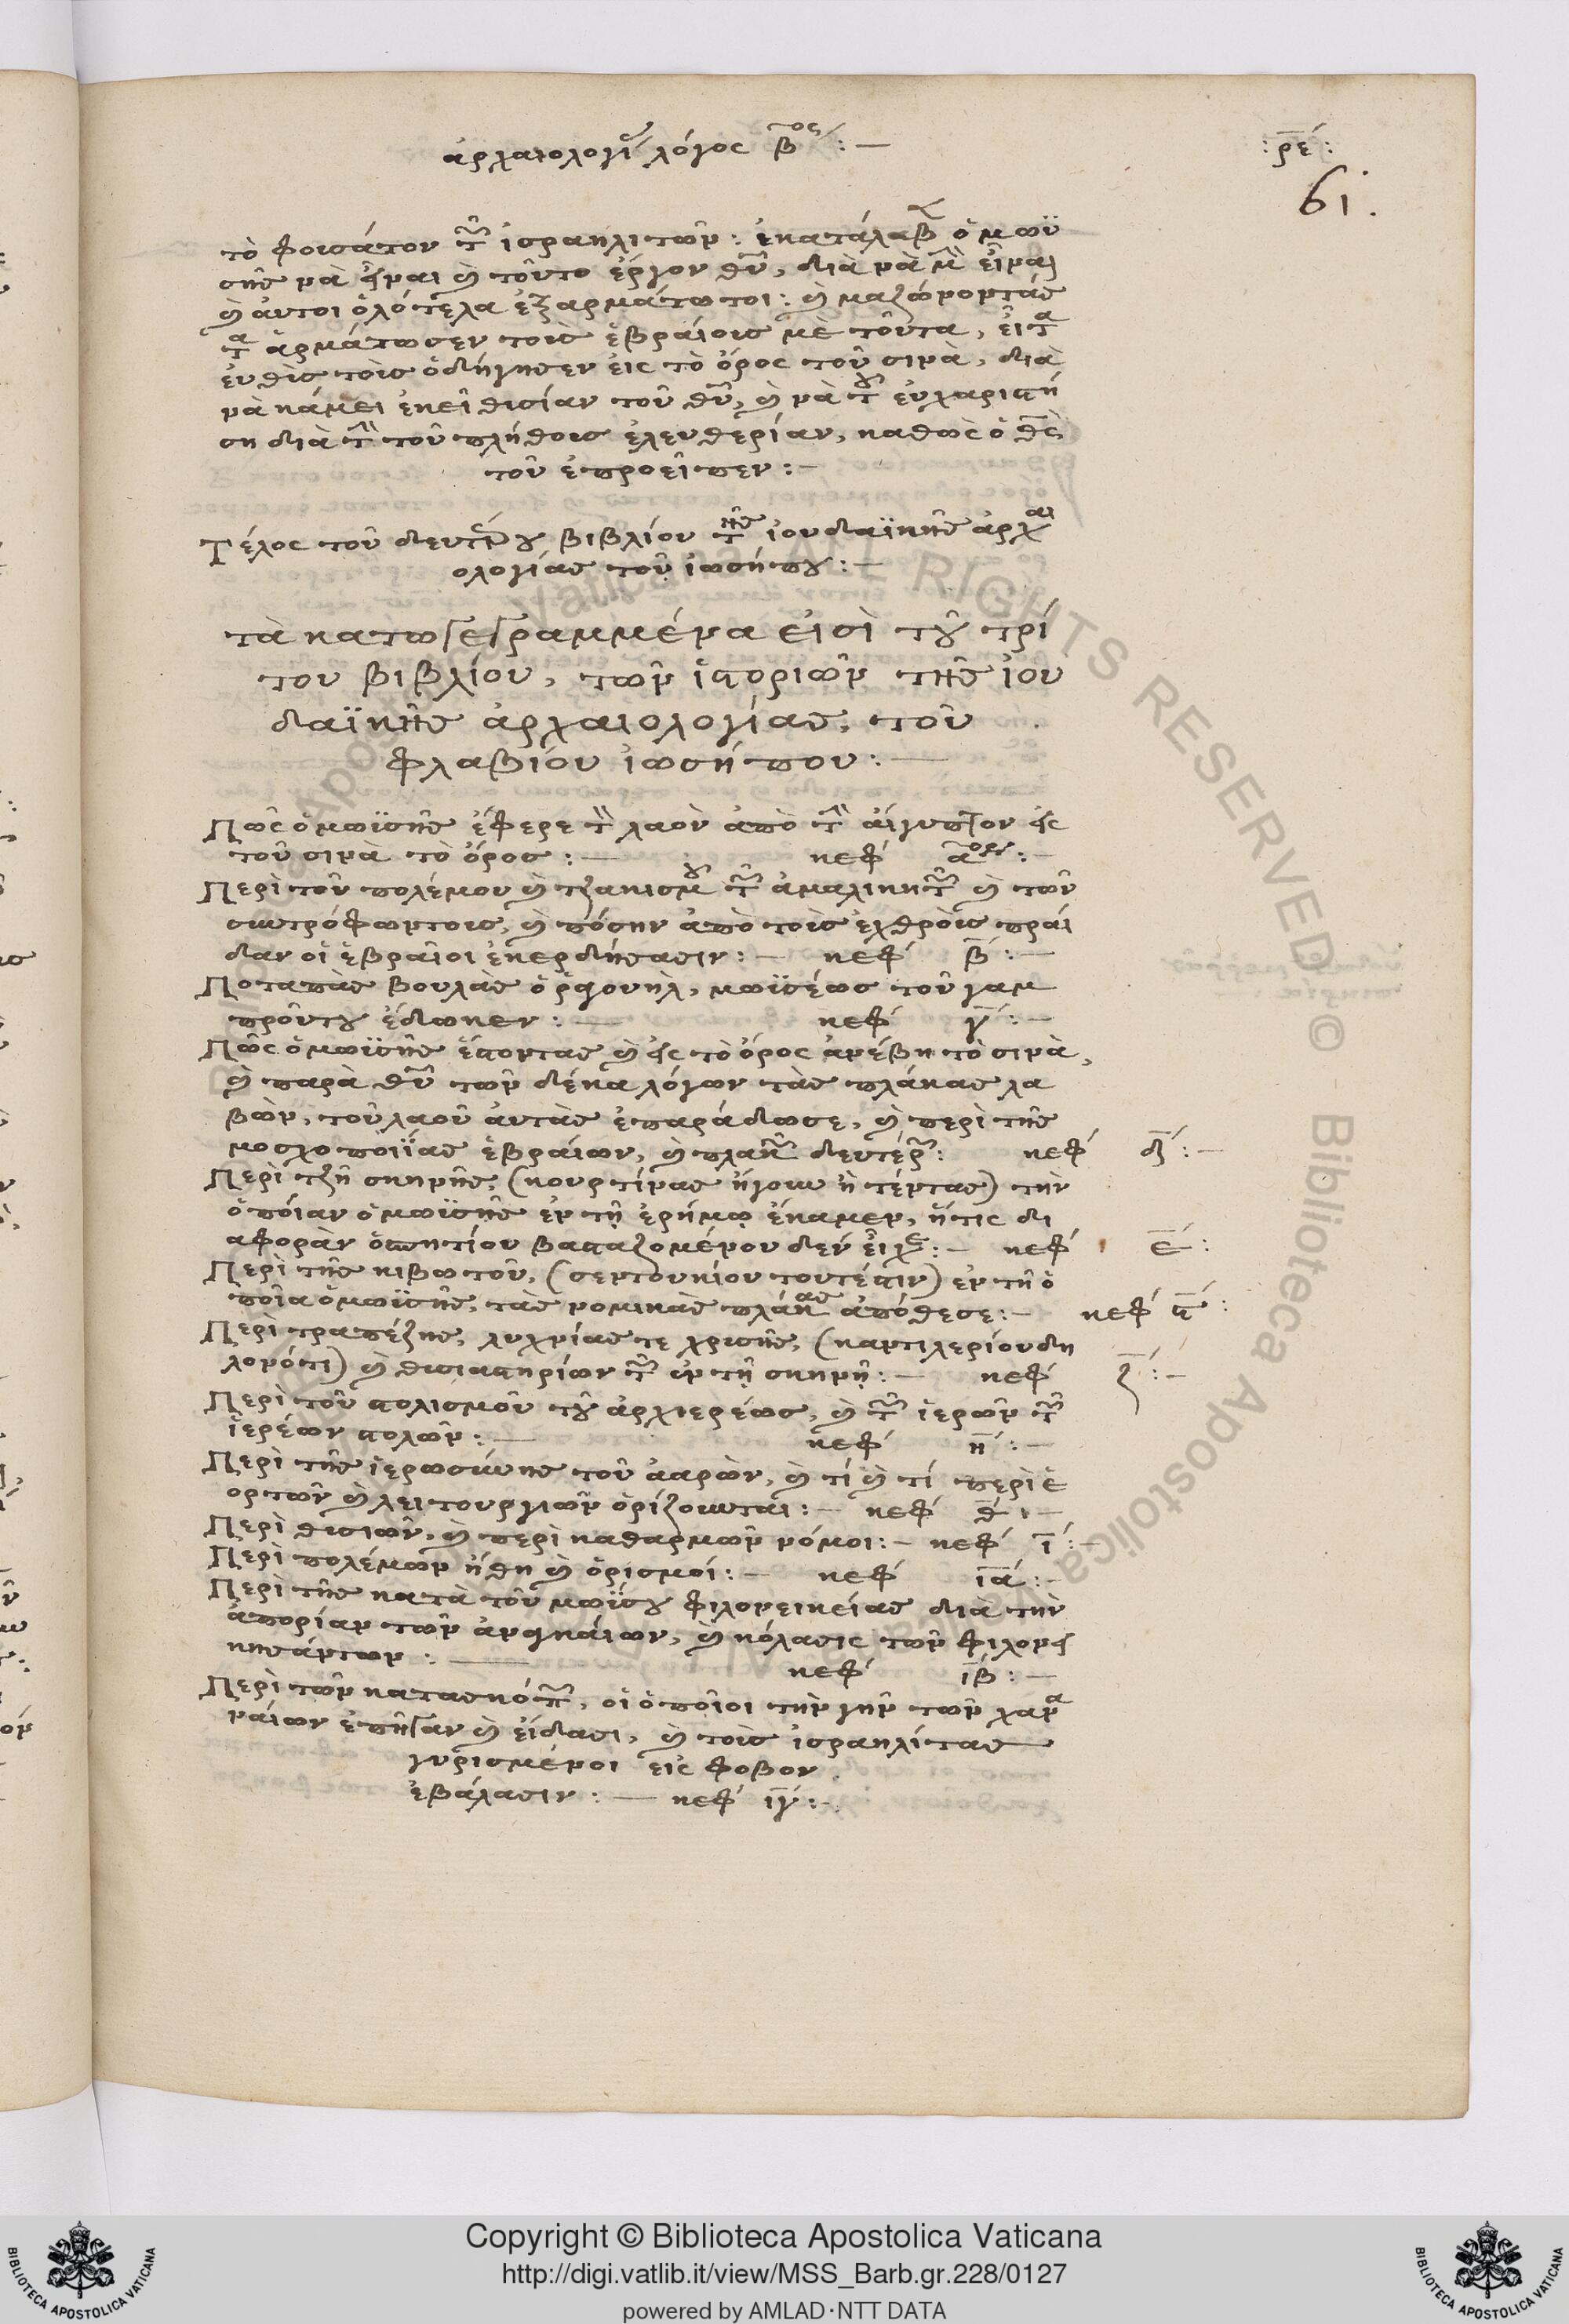 ἀρχαιολογι λόγος βτος : —
: ρε :
61.
τὸ φουσάτον τῶν ἰσραηλιτῶν : ἐκατάλαβε ὁ μωϋ
σῆς νὰ εἶναι καὶ τοῦτο ἔργον θυ, διὰ νὰ μὴ εἶναι
καὶ ἀυτοὶ ὁλότελα ἐξαρμάτωτοι : καὶ μαζώνοντάς
τα ἁρμάτωσεν τοὺς ἑβραίους μὲ τοῦτα, εἶτα
ἐυθὺς τοὺς ὁδήγησεν εἰς τὸ ὄρος τοῦ σινὰ, διὰ
νὰ κάμει ἐκεῖ θυσίαν τοῦ θυ, καὶ νὰ τοῦ ἐυχαριστή
ση διὰ τὴν τοῦ πλήθους ἐλευθερίαν, καθὼς ὁ θς
τοῦ ἐπροεῖπεν : —
Τέλος τοῦ δευτέρου βιβλίου τῆς ἰουδαϊκῆς ἀρχαι
ολογίας τοῦ ἰωσήπου : —
τὰ κατωγεγραμμένα εἰσὶ τοῦ τρί
του βιβλίου, τῶν ἱστοριῶν τῆς ἰου
δαϊκῆς ἀρχαιολογίας, τοῦ
φλαβίου ἰωσήπου : —
Πῶς ὁ μωϋσῆς ἔφερε τὸν λαὸν ἀπὸ τὴν ἀίγυπτον εἰς
τοῦ σινὰ τὸ ὄρος : — κεφ αον : —
Περὶ τοῦ πολέμου καὶ τζακισμοῦ τῶν ἀμαλικητῶν καὶ τῶν
συντρόφωντους, καὶ πόσην ἀπὸ τοὺς ἐχθροὺς πράι
δαν οἱ ἑβραῖοι ἐκερδήσασιν : — κεφ β : —
Ποταπὰς βουλὰς ὁ ῥαγουηλ, μωϋσέως τοῦ γαμ
προῦτου ἔδωκεν : — κεφ γ : —
Πῶς ὁ μωϋσῆς ἔστοντας καὶ εἰς τὸ ὄρος ἀνέβη τὸ σινὰ,
καὶ παρὰ θυ τῶν δέκα λόγων τὰς πλάκας λα
βὼν, τοῦ λαοῦ ἀυτὰς ἐπαράδωσε, καὶ περὶ τῆς
μοσχοποιΐας ἑβραίων, καὶ πλακῶν δευτέρων : κεφ δ : —
Περὶ τῆς σκηνῆς, (κουρτίνας ἤγουν ἢ τέντας) τὴν
ὁποίαν ὁ μωϋσῆς ἐν τῇ ἐρήμῳ ἔκαμεν, ἥτις δι
αφορὰν ὁσπητίου βασταζομένου δὲν εἶχε : — κεφ ε :
Περὶ τῆς κιβωτοῦ, (σεντουκίου τουτέστιν) ἐν τῇ ὁ
ποῖα ὁ μωϋσῆς, τὰς νομικὰς πλάκας ἀπόθεσε : — κεφ ϛ :
Περὶ τραπέζης, λυχνίας τε χρυσῆς, (καντιλερίου δη
λονότι) καὶ θυσιαστηρίων τῶν ἐν τῇ σκηνῇ : — κεφ ζ : —
Περὶ τοῦ στολισμοῦ τοῦ ἀρχιερέως, καὶ τῶν ἱερῶν τῶν
ἱερέων στολῶν : — κεφ η : —
Περὶ τῆς ἱερωσύνης τοῦ ἀαρὼν, καὶ τί καὶ τί περὶ ἑ
ορτῶν καὶ λειτουργιῶν ὁρίζουνται : — κεφ θ : —
Περὶ θυσιῶν, καὶ περὶ καθαρμῶν νόμοι : — κεφ ι : —
Περὶ πολέμων ἤθη καὶ ὁρισμοί : — κεφ ια : —
Περὶ τῆς κατὰ τοῦ μωϋσου φιλονεικείας διὰ τὴν
ἀπορίαν τῶν ἀναγκάιων, καὶ κόλασις τῶν φιλονει
κησάντων : — κεφ ιβ : —
Περὶ τῶν κατασκόπων, οἱ ὁποῖοι τὴν γῆν τῶν χανα
ναίων ἐπῆγαν καὶ εἴδασι, καὶ τοὺς ἰσραηλίτας
γυρισμένοι εἰς φοβον
ἐβάλασιν : — κεφ ιγ : —
Copyright © Biblioteca Apostolica Vaticana
http://digi.vatlib.it/view/MSS_Barb.gr.228/0127
powered by AMLAD·NTT DATA